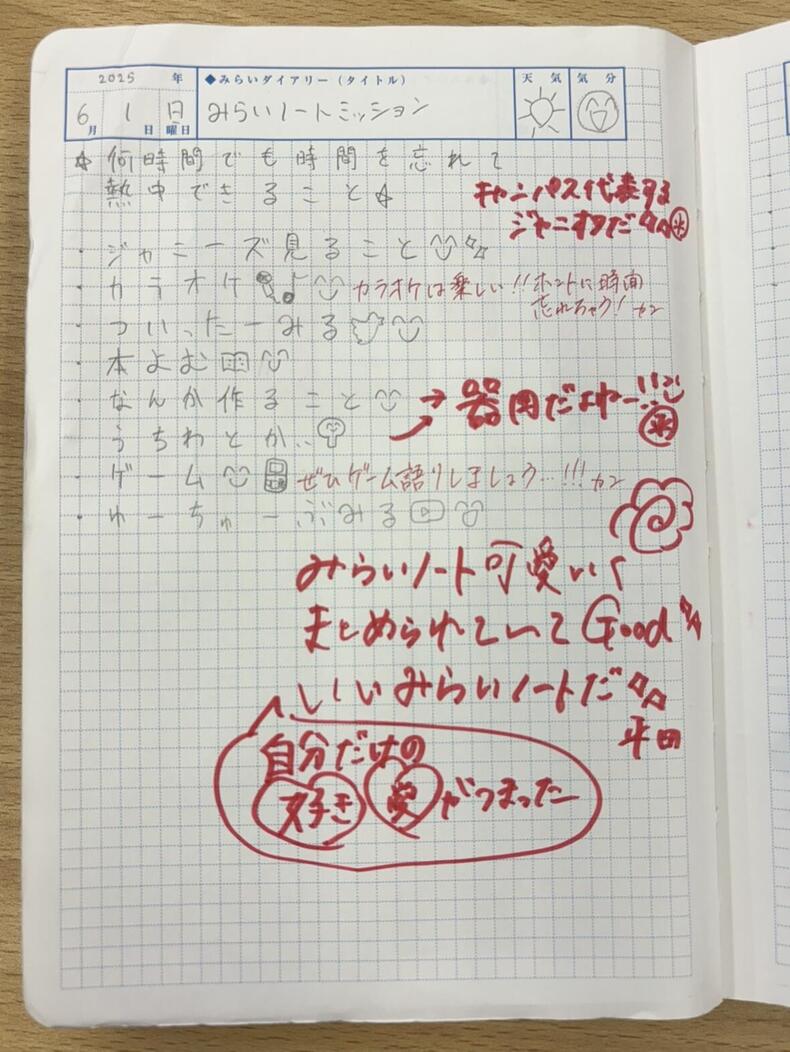 2025年
◆みらいダイアリー（タイトル）
天気
気分
6月1日日曜日
みらいノートミッション
☆何時間でも時間を忘れて
熱中できること☆
キャンパス代表する
ジャニオタだ
・ジャニーズ見ること
・カラオケ
カラオケは楽しい!!ホントに時間
忘れちゃう!カン
・ついったーみる
・本よむ
・なんか作ること
→器用だよねー!!
うちわとか、、
・ゲーム
ぜひゲーム語りしましょう…!!!カン
・ゆーちゅーぶみる
みらいノート可愛いく
まとめられていてGood
いいみらいノートだ
平田
自分だけの
好き 愛がつまった